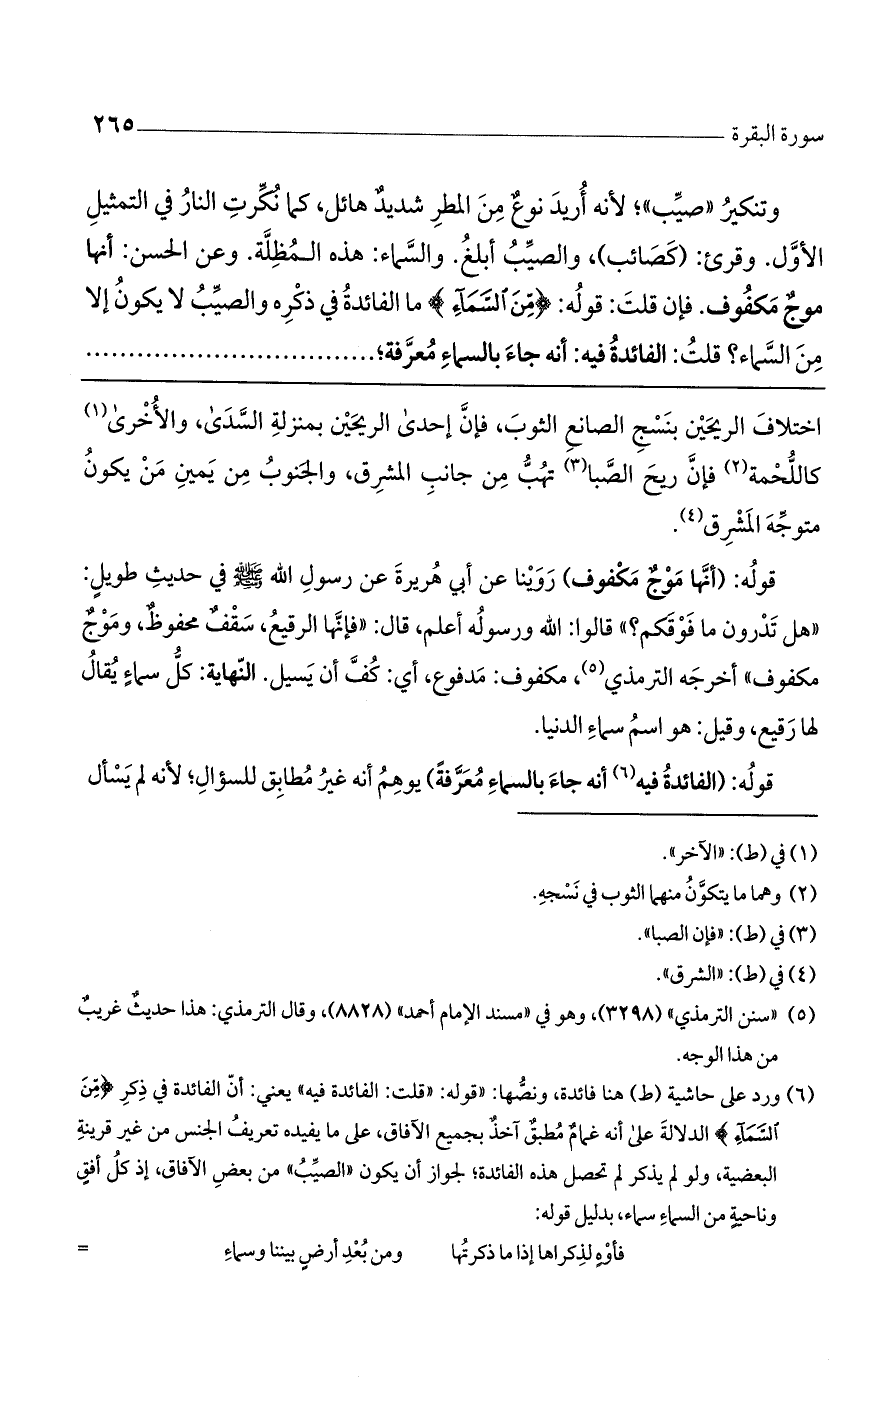 سورة البقرة ٢٦٥
وتنكيرُ «صيِّب»؛ لأنه أُريدَ نوعٌ مِنَ المطرِ شديدٌ هائل، كما نُكِّرتِ النارُ في التمثيلِ
الأوَّل. وقرئ: (كَصَائب)، والصيِّبُ أبلغُ. والسَّماء: هذه الـمُظِلَّة. وعن الحسن: أنها
موجٌ مَكفُوف. فإن قلتَ: قولُه: ﴿مِّنَ ٱلسَّمَآءِ﴾ ما الفائدةُ في ذكْرِه والصيِّبُ لا يكونُ إلا
مِنَ السَّماء؟ قلتُ: الفائدةُ فيه: أنه جاءَ بالسماءِ مُعرَّفة؛.................................
اختلافَ الريحَيْن بنَسْجِ الصانعِ الثوبَ، فإنَّ إحدىٰ الريحَيْن بمنزلةِ السَّدَىٰ، والأُخْرىٰ(١)
كاللُّحْمة(٢) فإنَّ ريحَ الصَّبا(٣) تهُبُّ مِن جانبِ المشرِق، والجَنوبُ مِن يَمينِ مَنْ يكونُ
متوجِّهَ المَشْرِق(٤).
قولُه: (أنَّها مَوْجٌ مَكْفوف) رَوَيْنا عن أبي هُريرةَ عن رسولِ الله ﷺ في حديثٍ طويلٍ:
«هل تَدْرون ما فَوْقَكم؟» قالوا: الله ورسولُه أعلم، قال: «فإنَّها الرقيعُ، سَقْفٌ محفوظٌ، ومَوْجٌ
مكفوف» أخرجَه الترمذي(٥)، مكفوف: مَدفوع، أي: كُفَّ أن يَسيل. النّهاية: كلُّ سماءٍ يُقالُ
لها رَقيع، وقيل: هو اسمُ سماءِ الدنيا.
قولُه: (الفائدةُ فيه(٦) أنه جاءَ بالسماءِ مُعَرَّفةً) يوهِمُ أنه غيرُ مُطابِق للسؤالِ؛ لأنه لم يَسْأل
(١) في (ط): «الآخر».
(٢) وهما ما يتكوَّنُ منهما الثوب في نَسْجِهِ.
(٣) في (ط): «فإن الصبا».
(٤) في (ط): «الشرق».
(٥) «سنن الترمذي» (٣٢٩٨)، وهو في «مسند الإمام أحمد» (٨٨٢٨)، وقال الترمذي: هذا حديثٌ غريبٌ
من هذا الوجه.
(٦) ورد على حاشية (ط) هنا فائدة، ونصُّها: «قوله: «قلت: الفائدة فيه» يعني: أنّ الفائدة في ذِكرِ ﴿مِّنَ
ٱلسَّمَآءِ﴾ الدلالةَ علىٰ أنه غمامٌ مُطبقٌ آخذٌ بجميع الآفاق، على ما يفيده تعريفُ الجنس من غير قرينةِ
البعضية، ولو لم يذكر لم تحصل هذه الفائدة؛ لجواز أن يكون «الصيِّبُ» من بعضِ الآفاق، إذ كلُّ أفقٍ
وناحيةٍ من السماءِ سماء، بدليل قوله:
فأوْهِ لذِكراها إذا ما ذكرتُها ومن بُعْدِ أرضٍ بيننا وسماءِ =